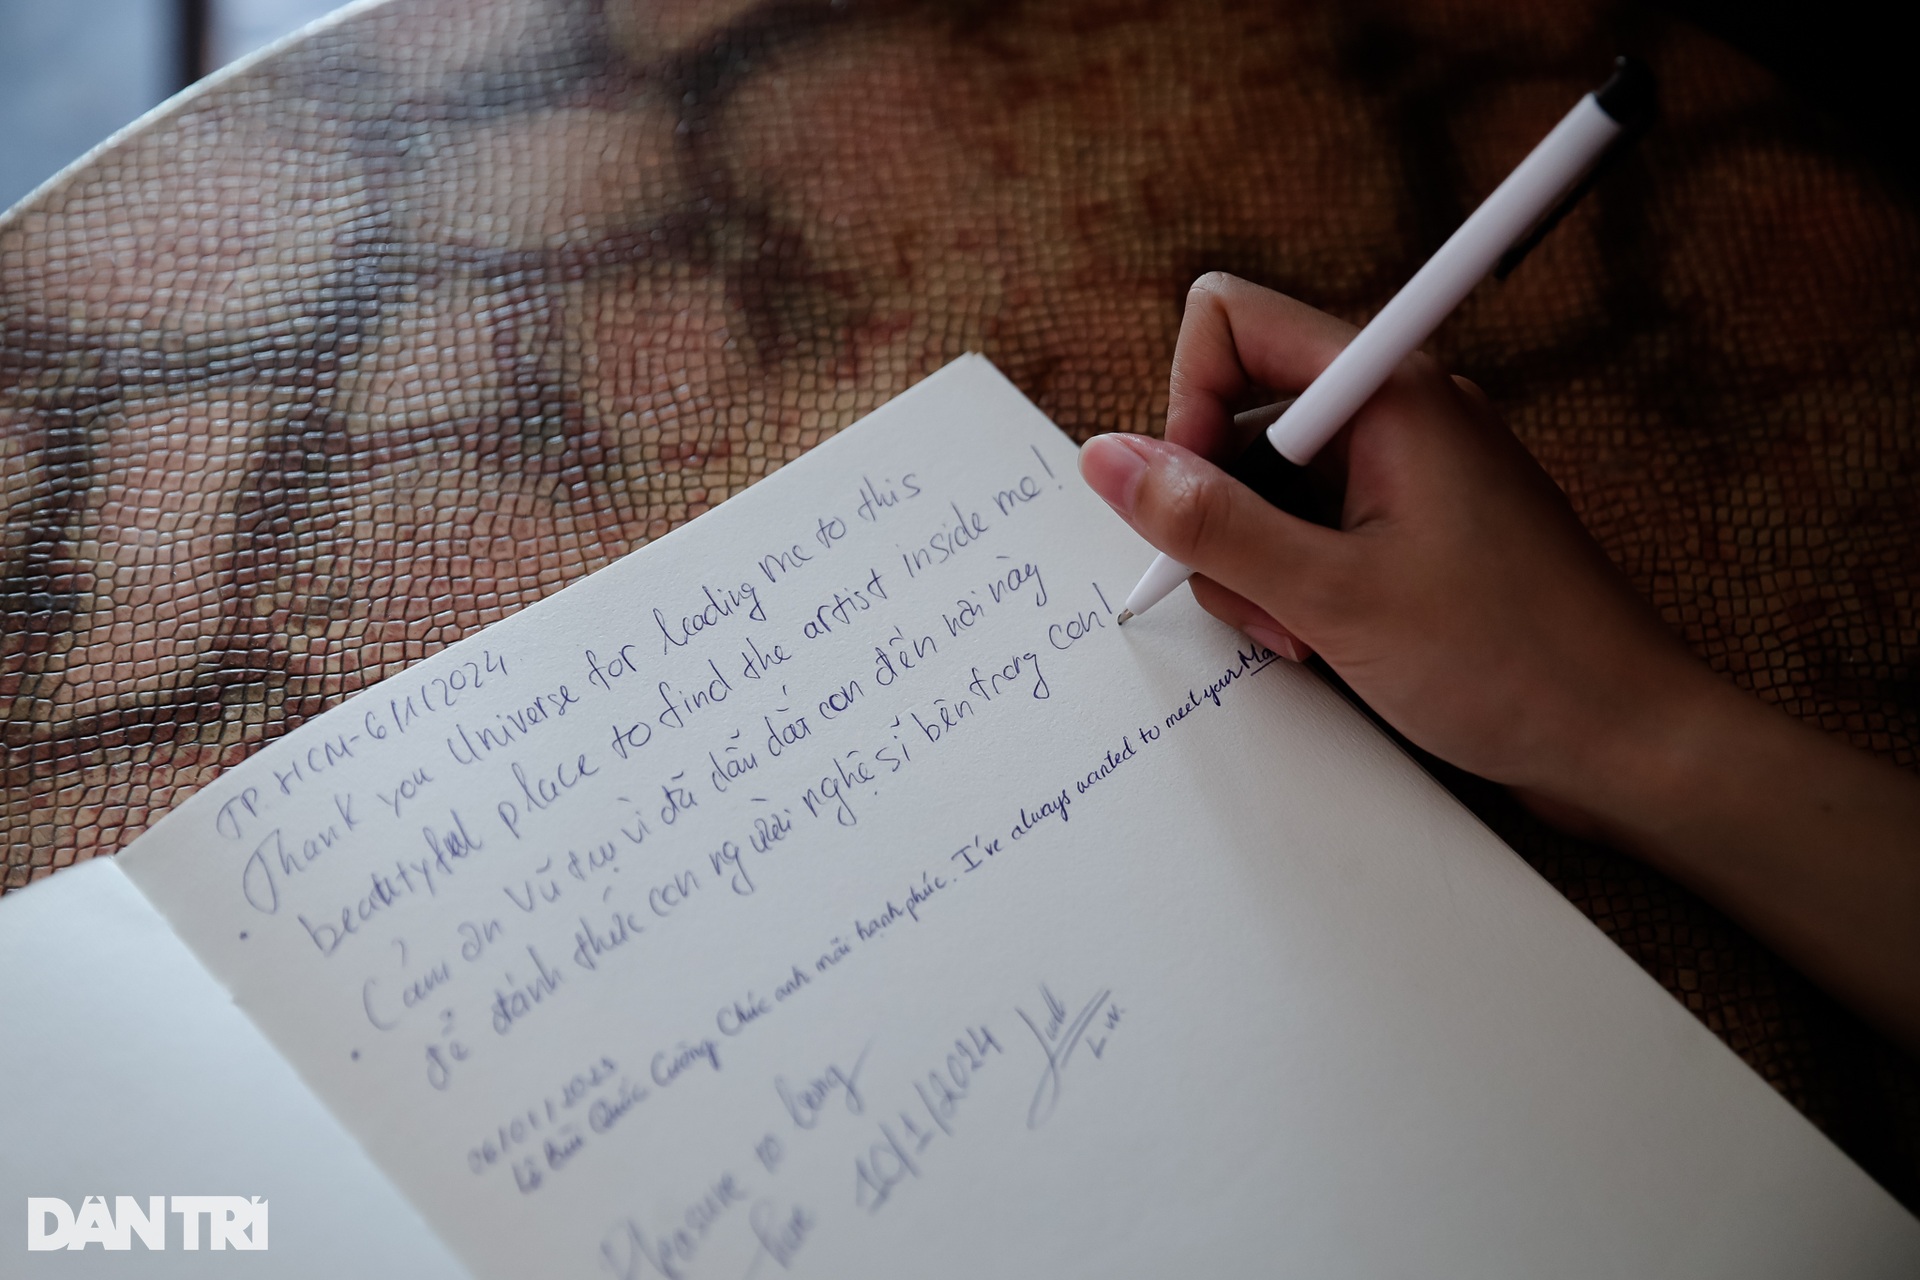 TP. HCM - 6/1/2024.
Thank you Universe for leading me to this
beautyful place to find the artist inside me!
Cảm ơn Vũ trụ vì đã dẫn dắt con đến nơi này
để đánh thức con người nghệ sĩ bên trong con!
06/01/2023
Lê Bùi Quốc Cường Chúc anh mãi hạnh phúc. I've always wanted to meet your
Pleasure to being
here 10/1/2024
L.W.
DÂN TRÍ